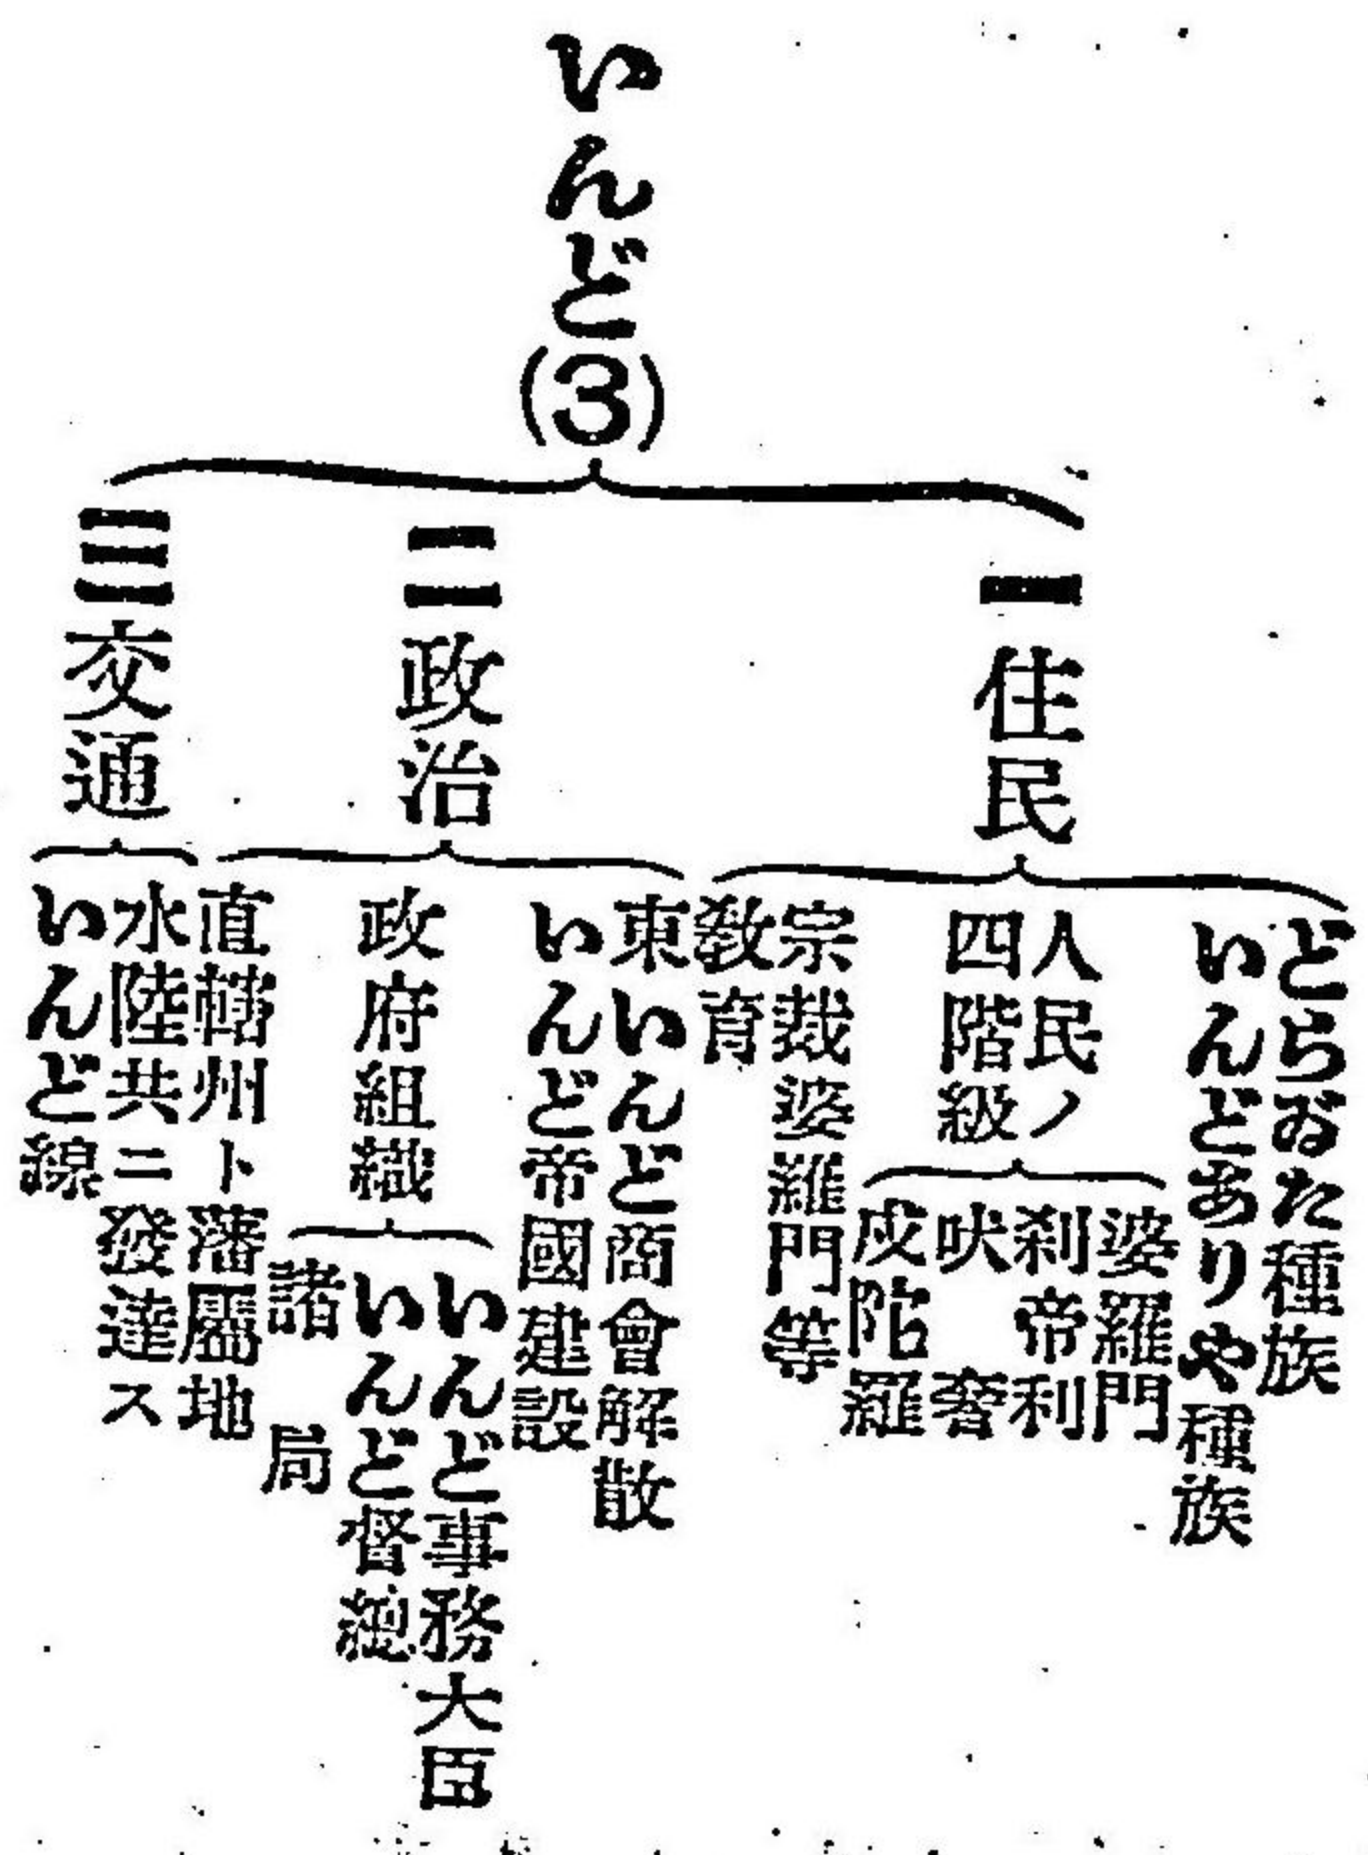 いんど(3)
一 住民
どらゐた種族
いんどありや種族
人民ノ
四階級
婆羅門
刹帝利
吠奢
戍陀羅
宗裁婆羅門等
敎育
二 政治
東いんど商會解散
いんど帝國建設
政府組織
いんど事務大臣
いんど督總
諸局
直轄州ト藩屬地
三 交通
水陸共ニ發達ス
いんど線